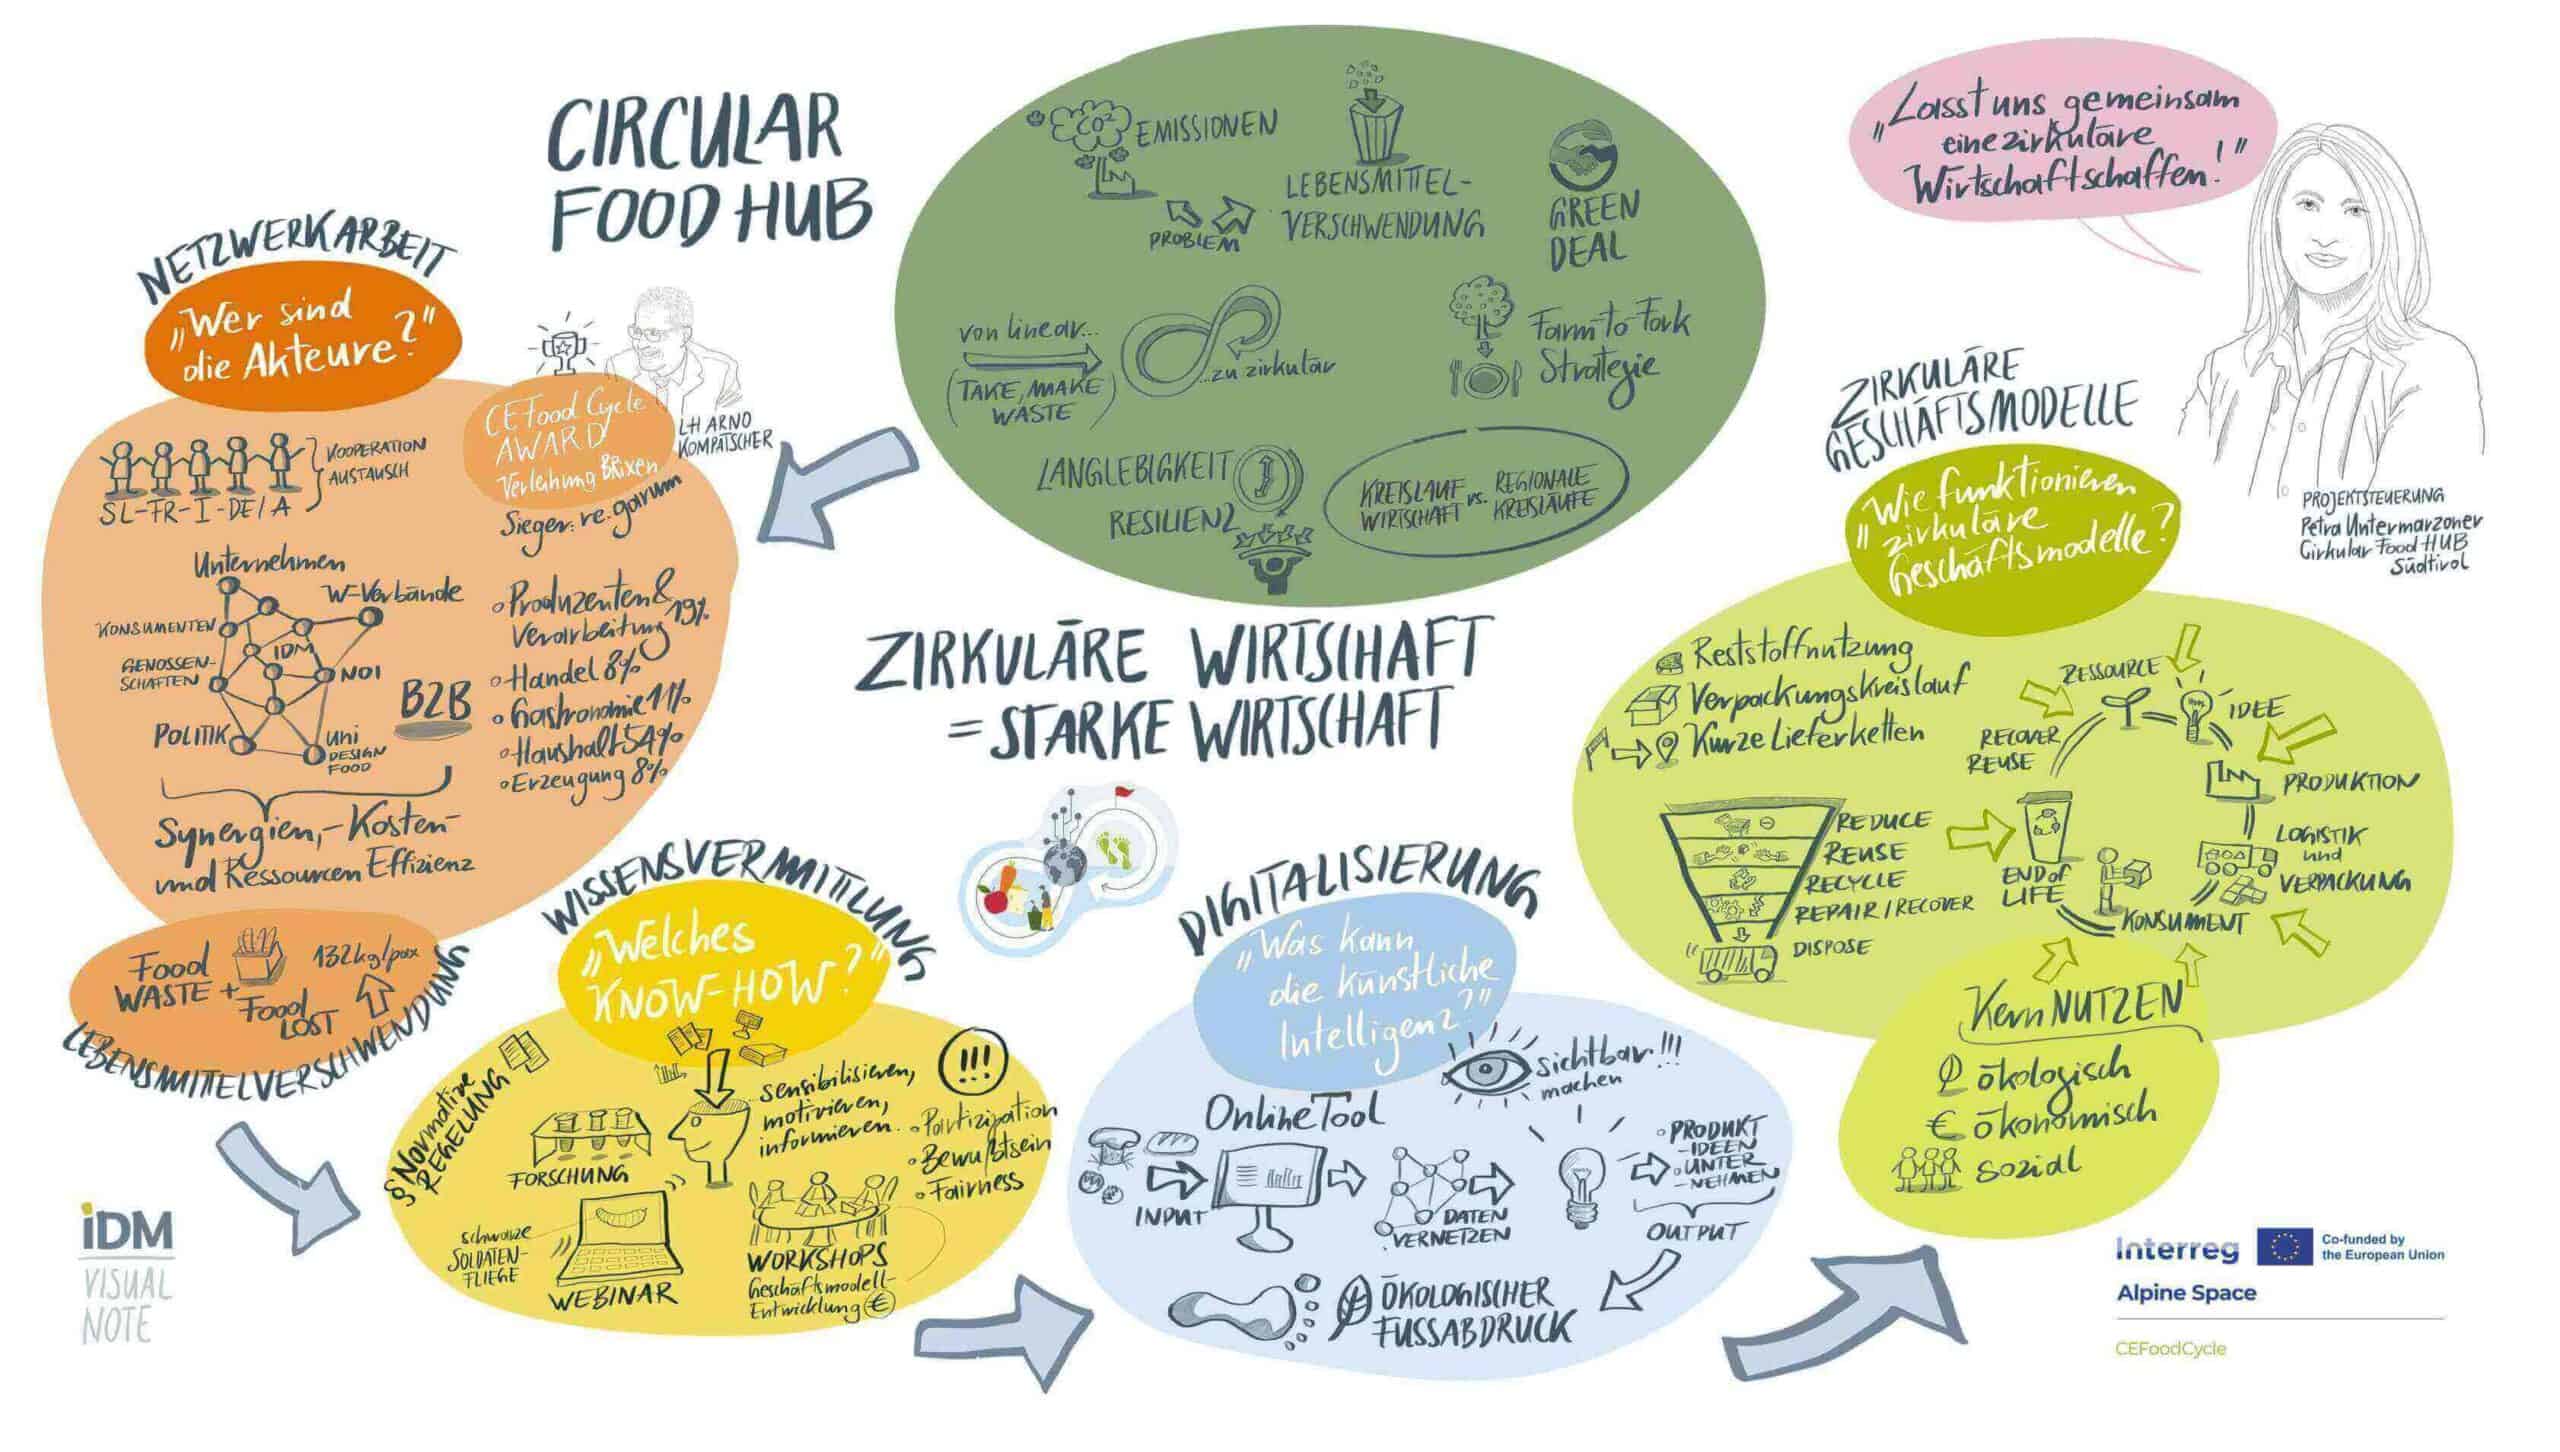 CIRCULAR
FOOD HUB
CO2 EMISSIONEN
LEBENSMITTEL-
VERSCHWENDUNG
PROBLEM
GREEN
DEAL
von linear...
(TAKE, MAKE
WASTE)
...zu zirkulär
Farm to Fork
Strategie
LANGLEBIGKEIT
RESILIENZ
KREISLAUF
WIRTSCHAFT
vs.
REGIONALE
KREISLÄUFE
ZIRKULÄRE WIRTSCHAFT
= STARKE WIRTSCHAFT
NETZWERKARBEIT
„Wer sind
die Akteure?"
KOOPERATION
AUSTAUSCH
SL-FR-I-DE/A
CEFood Cycle
AWARD
Verleihung Brixen
Sieger: re.garum
LH ARNO
KOMPATSCHER
Unternehmen
W-Verbände
KONSUMENTEN
IDM
GENOSSEN-
SCHAFTEN
NOI
POLITIK
uni
DESIGN
FOOD
B2B
◦ Produzenten &
Verarbeitung 19%
◦ Handel 8%
◦ Gastronomie 11%
◦ Haushalt 54%
◦ Erzeugung 8%
Synergien,- Kosten-
und Ressourcen Effizienz
Food
WASTE +
Food
LOST
132kg/pax
LEBENSMITTELVERSCHWENDUNG
WISSENSVERMITTLUNG
„Welches
KNOW-HOW?"
§ Normative
REGELUNG
sensibilisieren,
motivieren,
informieren.
!!!
◦ Partizipation
◦ Bewußtsein
◦ Fairness
FORSCHUNG
schwarze
SOLDATEN-
FLIEGE
WEBINAR
WORKSHOPS
Geschäftsmodell-
Entwicklung €
DIGITALISIERUNG
„Was kann
die künstliche
Intelligenz?"
Sichtbar!!!
machen
Online Tool
INPUT
DATEN
VERNETZEN
◦ PRODUKT
-IDEEN
◦ UNTER
-NEHMEN
OUTPUT
ÖKOLOGISCHER
FUSSABDRUCK
„Lasst uns gemeinsam
eine zirkuläre
Wirtschaft schaffen!"
PROJEKTSTEUERUNG
Petra Untermarzoner
Cirkular Food HUB
Südtirol
ZIRKULÄRE
GESCHÄFTSMODELLE
„Wie funktionieren
zirkuläre
Geschäftsmodelle?
Reststoffnutzung
Verpackungskreislauf
Kurze Lieferketten
REDUCE
REUSE
RECYCLE
REPAIR/RECOVER
DISPOSE
RESSOURCE
IDEE
PRODUKTION
LOGISTIK
und
VERPACKUNG
KONSUMENT
END of
LIFE
RECOVER
REUSE
KernNUTZEN
ökologisch
€ ökonomisch
sozial
IDM
VISUAL
NOTE
Interreg
Co-funded by
the European Union
Alpine Space
CEFoodCycle